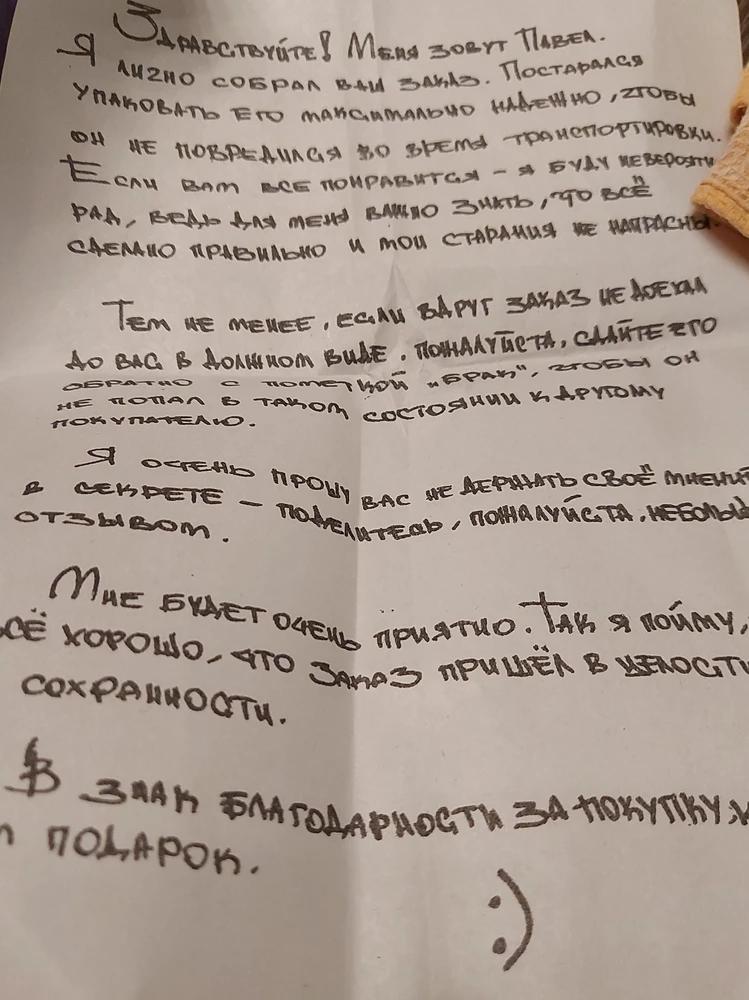 Здравствуйте! Меня зовут Павел.
Я лично собрал ваш заказ. Постарался
упаковать его максимально надежно, чтобы
он не повредился во время транспортировки.
Если вам все понравится – я буду невероятн
рад, ведь для меня важно знать, что всё
сделано правильно и мои старания не напрасны.
Тем не менее, если вдруг заказ не доехал
до вас в должном виде, пожалуйста, сдайте его
обратно с пометкой "брак", чтобы он
не попал в таком состоянии к другому
покупателю.
Я очень прошу вас не держать своё мнени
в секрете – поделитесь, пожалуйста, небольш
отзывом.
Мне будет очень приятно. Так я пойму,
сё хорошо, что заказ пришёл в целости
сохранности.
В знак благодарности за покупку,
подарок.
:)